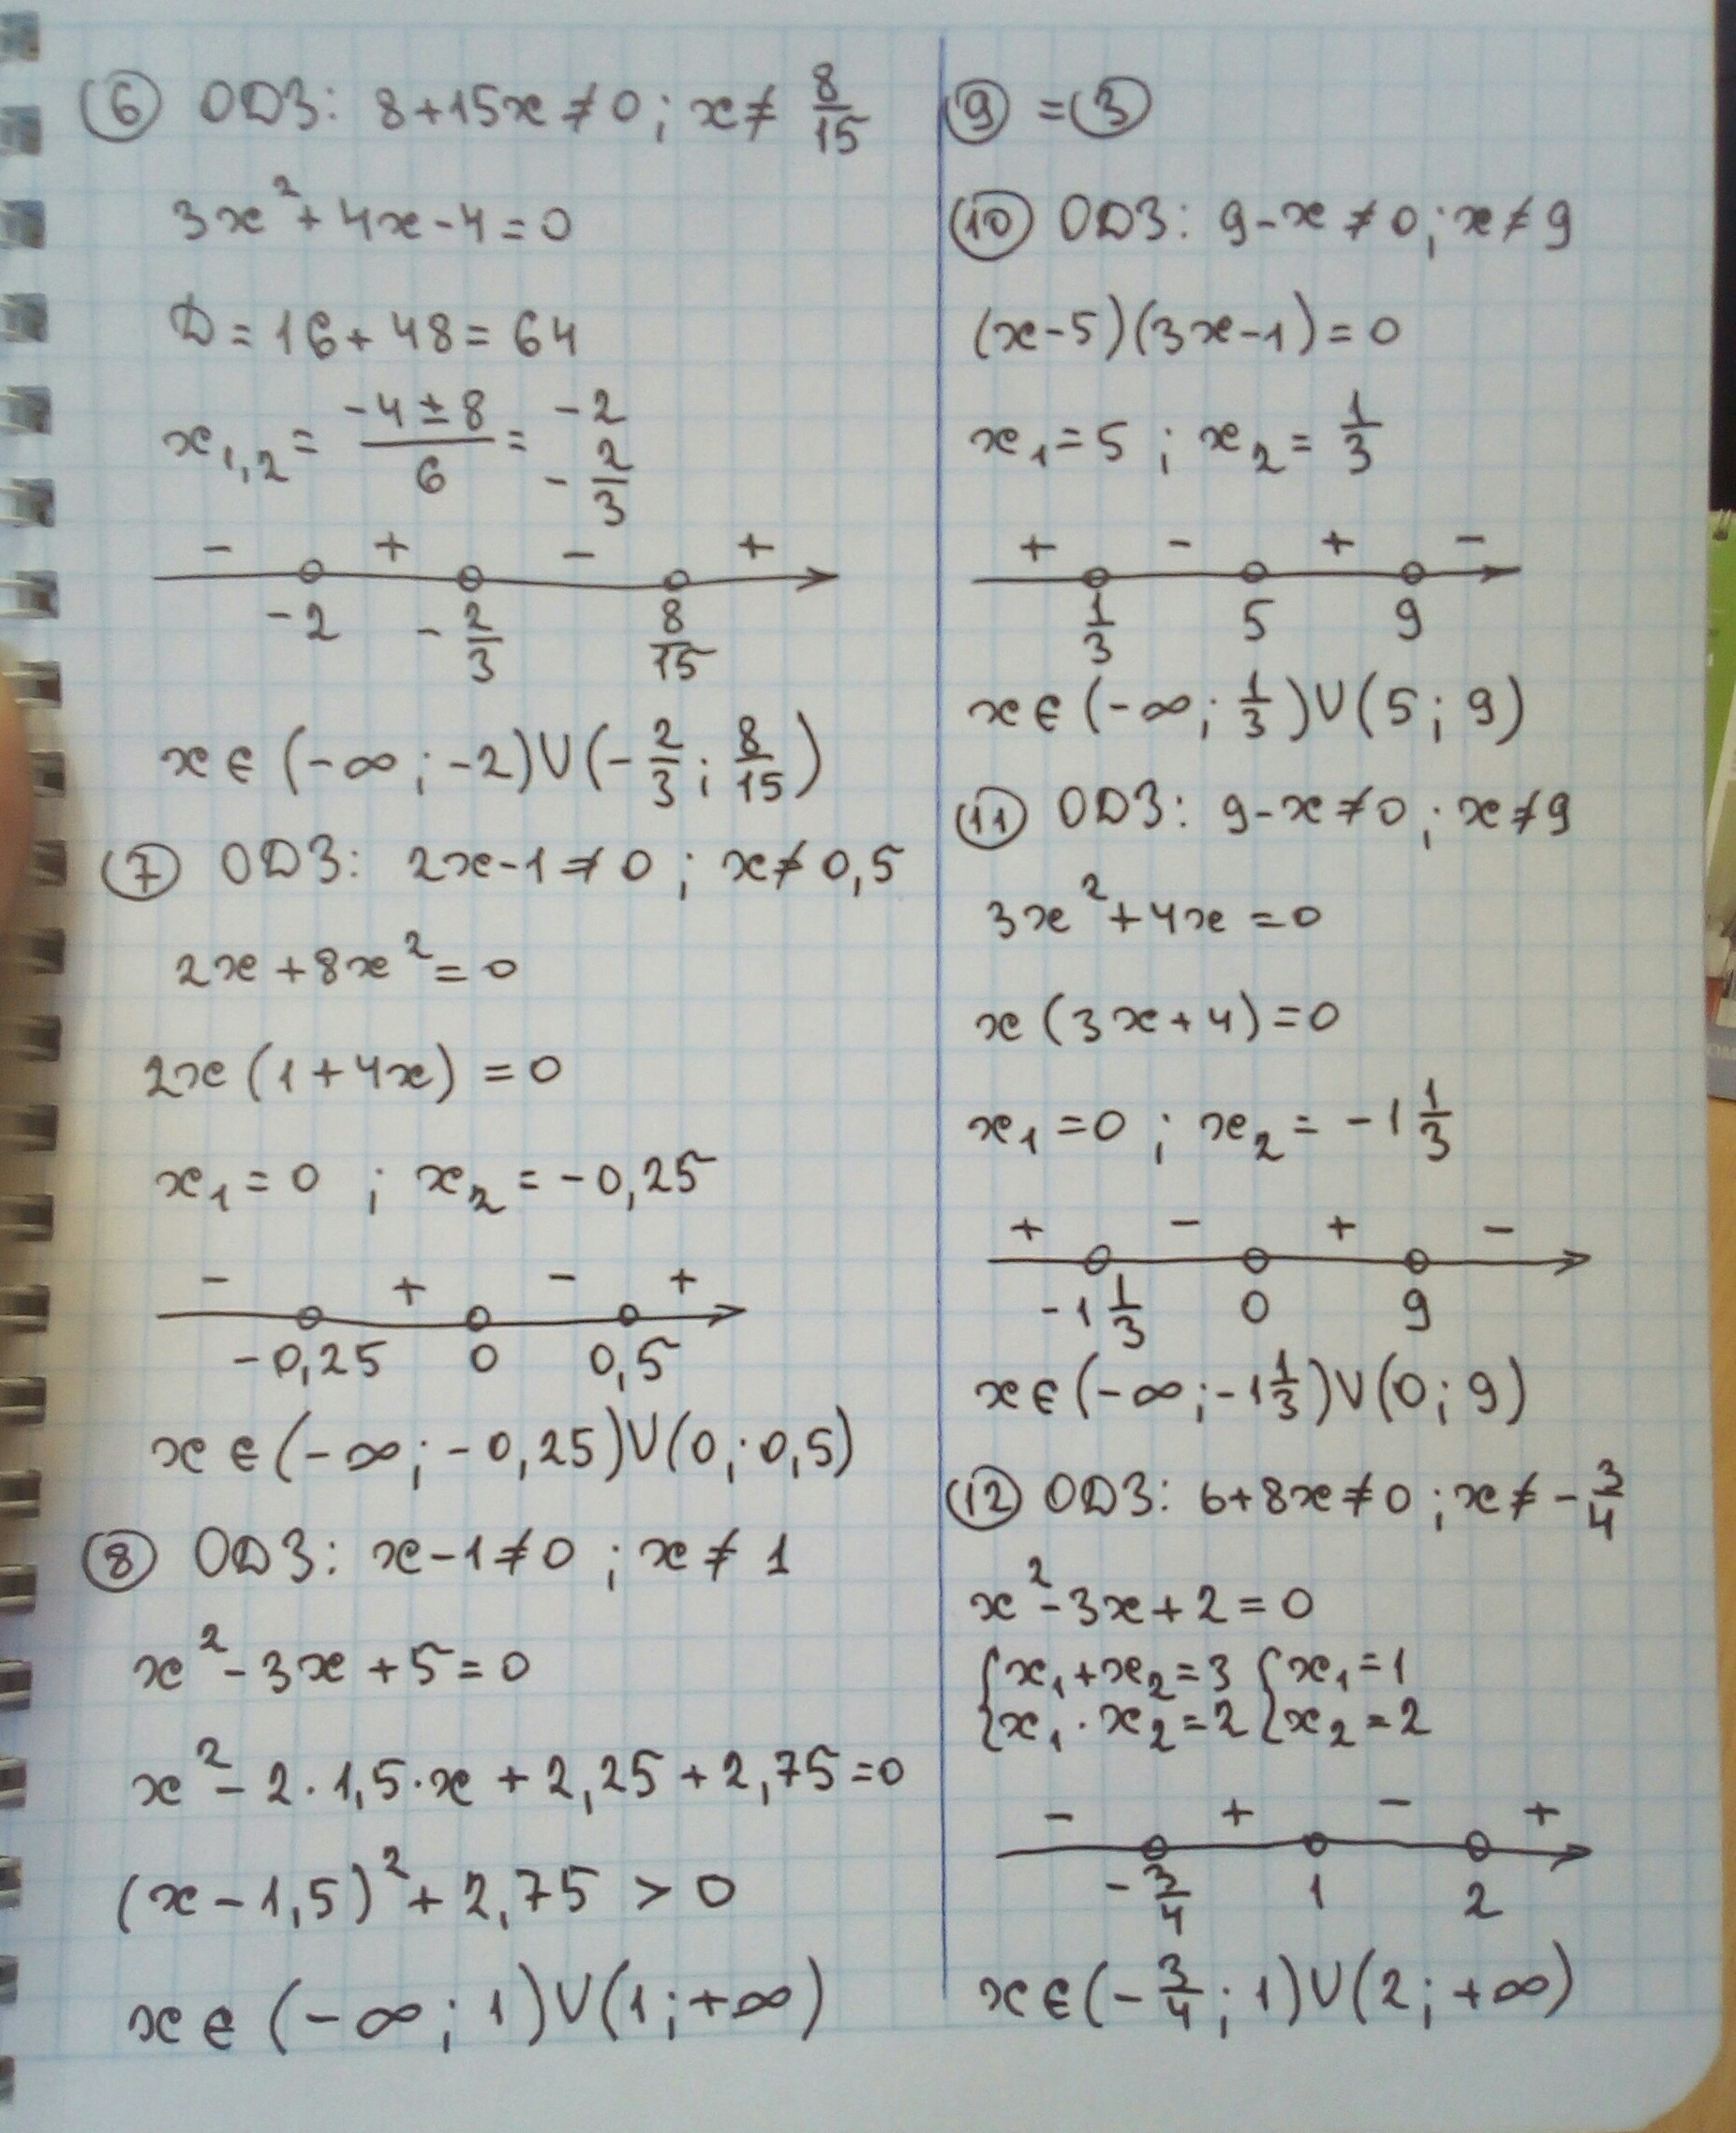 ⑥ ОДЗ: 8+15x≠0; x≠ 8/15
3x²+4x-4=0
D=16+48=64
x₁,₂ = (-4±8)/6 = -2
-2/3
- + - +
-2 -2/3 8/15
x∈(-∞; -2)∪(-2/3; 8/15)
⑦ ОДЗ: 2x-1≠0; x≠0,5
2x+8x²=0
2x(1+4x)=0
x₁=0; x₂=-0,25
- + - +
-0,25 0 0,5
x∈(-∞; -0,25)∪(0; 0,5)
⑧ ОДЗ: x-1≠0; x≠1
x²-3x+5=0
x²-2·1,5·x+2,25+2,75=0
(x-1,5)²+2,75>0
x∈(-∞; 1)∪(1; +∞)
⑨ = ③
⑩ ОДЗ: 9-x≠0; x≠9
(x-5)(3x-1)=0
x₁=5; x₂=1/3
+ - + -
1/3 5 9
x∈(-∞; 1/3)∪(5; 9)
⑪ ОДЗ: 9-x≠0; x≠9
3x²+4x=0
x(3x+4)=0
x₁=0; x₂=-1 1/3
+ - + -
-1 1/3 0 9
x∈(-∞; -1 1/3)∪(0; 9)
⑫ ОДЗ: 6+8x≠0; x≠-3/4
x²-3x+2=0
{x₁+x₂=3 {x₁=1
{x₁·x₂=2 {x₂=2
- + - +
-3/4 1 2
x∈(-3/4; 1)∪(2; +∞)